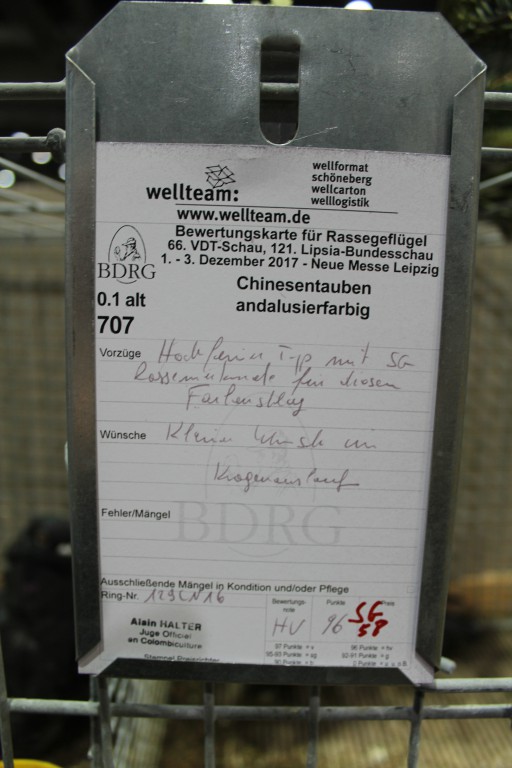 wellteam:
wellformat
schöneberg
wellcarton
welllogistik
www.wellteam.de
Bewertungskarte für Rassegeflügel
66. VDT-Schau, 121. Lipsia-Bundesschau
1. - 3. Dezember 2017 - Neue Messe Leipzig
BDRG
Chinesentauben
andalusierfarbig
0.1 alt
707
Vorzüge Hochfeiner Typ mit SG
Rassemerkmale für diesen
Farbenschlag
Wünsche Kleiner Wunsch im
Kragenauslauf
BDRG
Fehler/Mängel
Ausschließende Mängel in Kondition und/oder Pflege
Ring-Nr. 129 CN 16
Alain HALTER
Juge Officiel
en Colombiculture
Bewertungs-
note
HV
Punkte
96
Preis
SG
97 Punkte = v
96 Punkte = hv